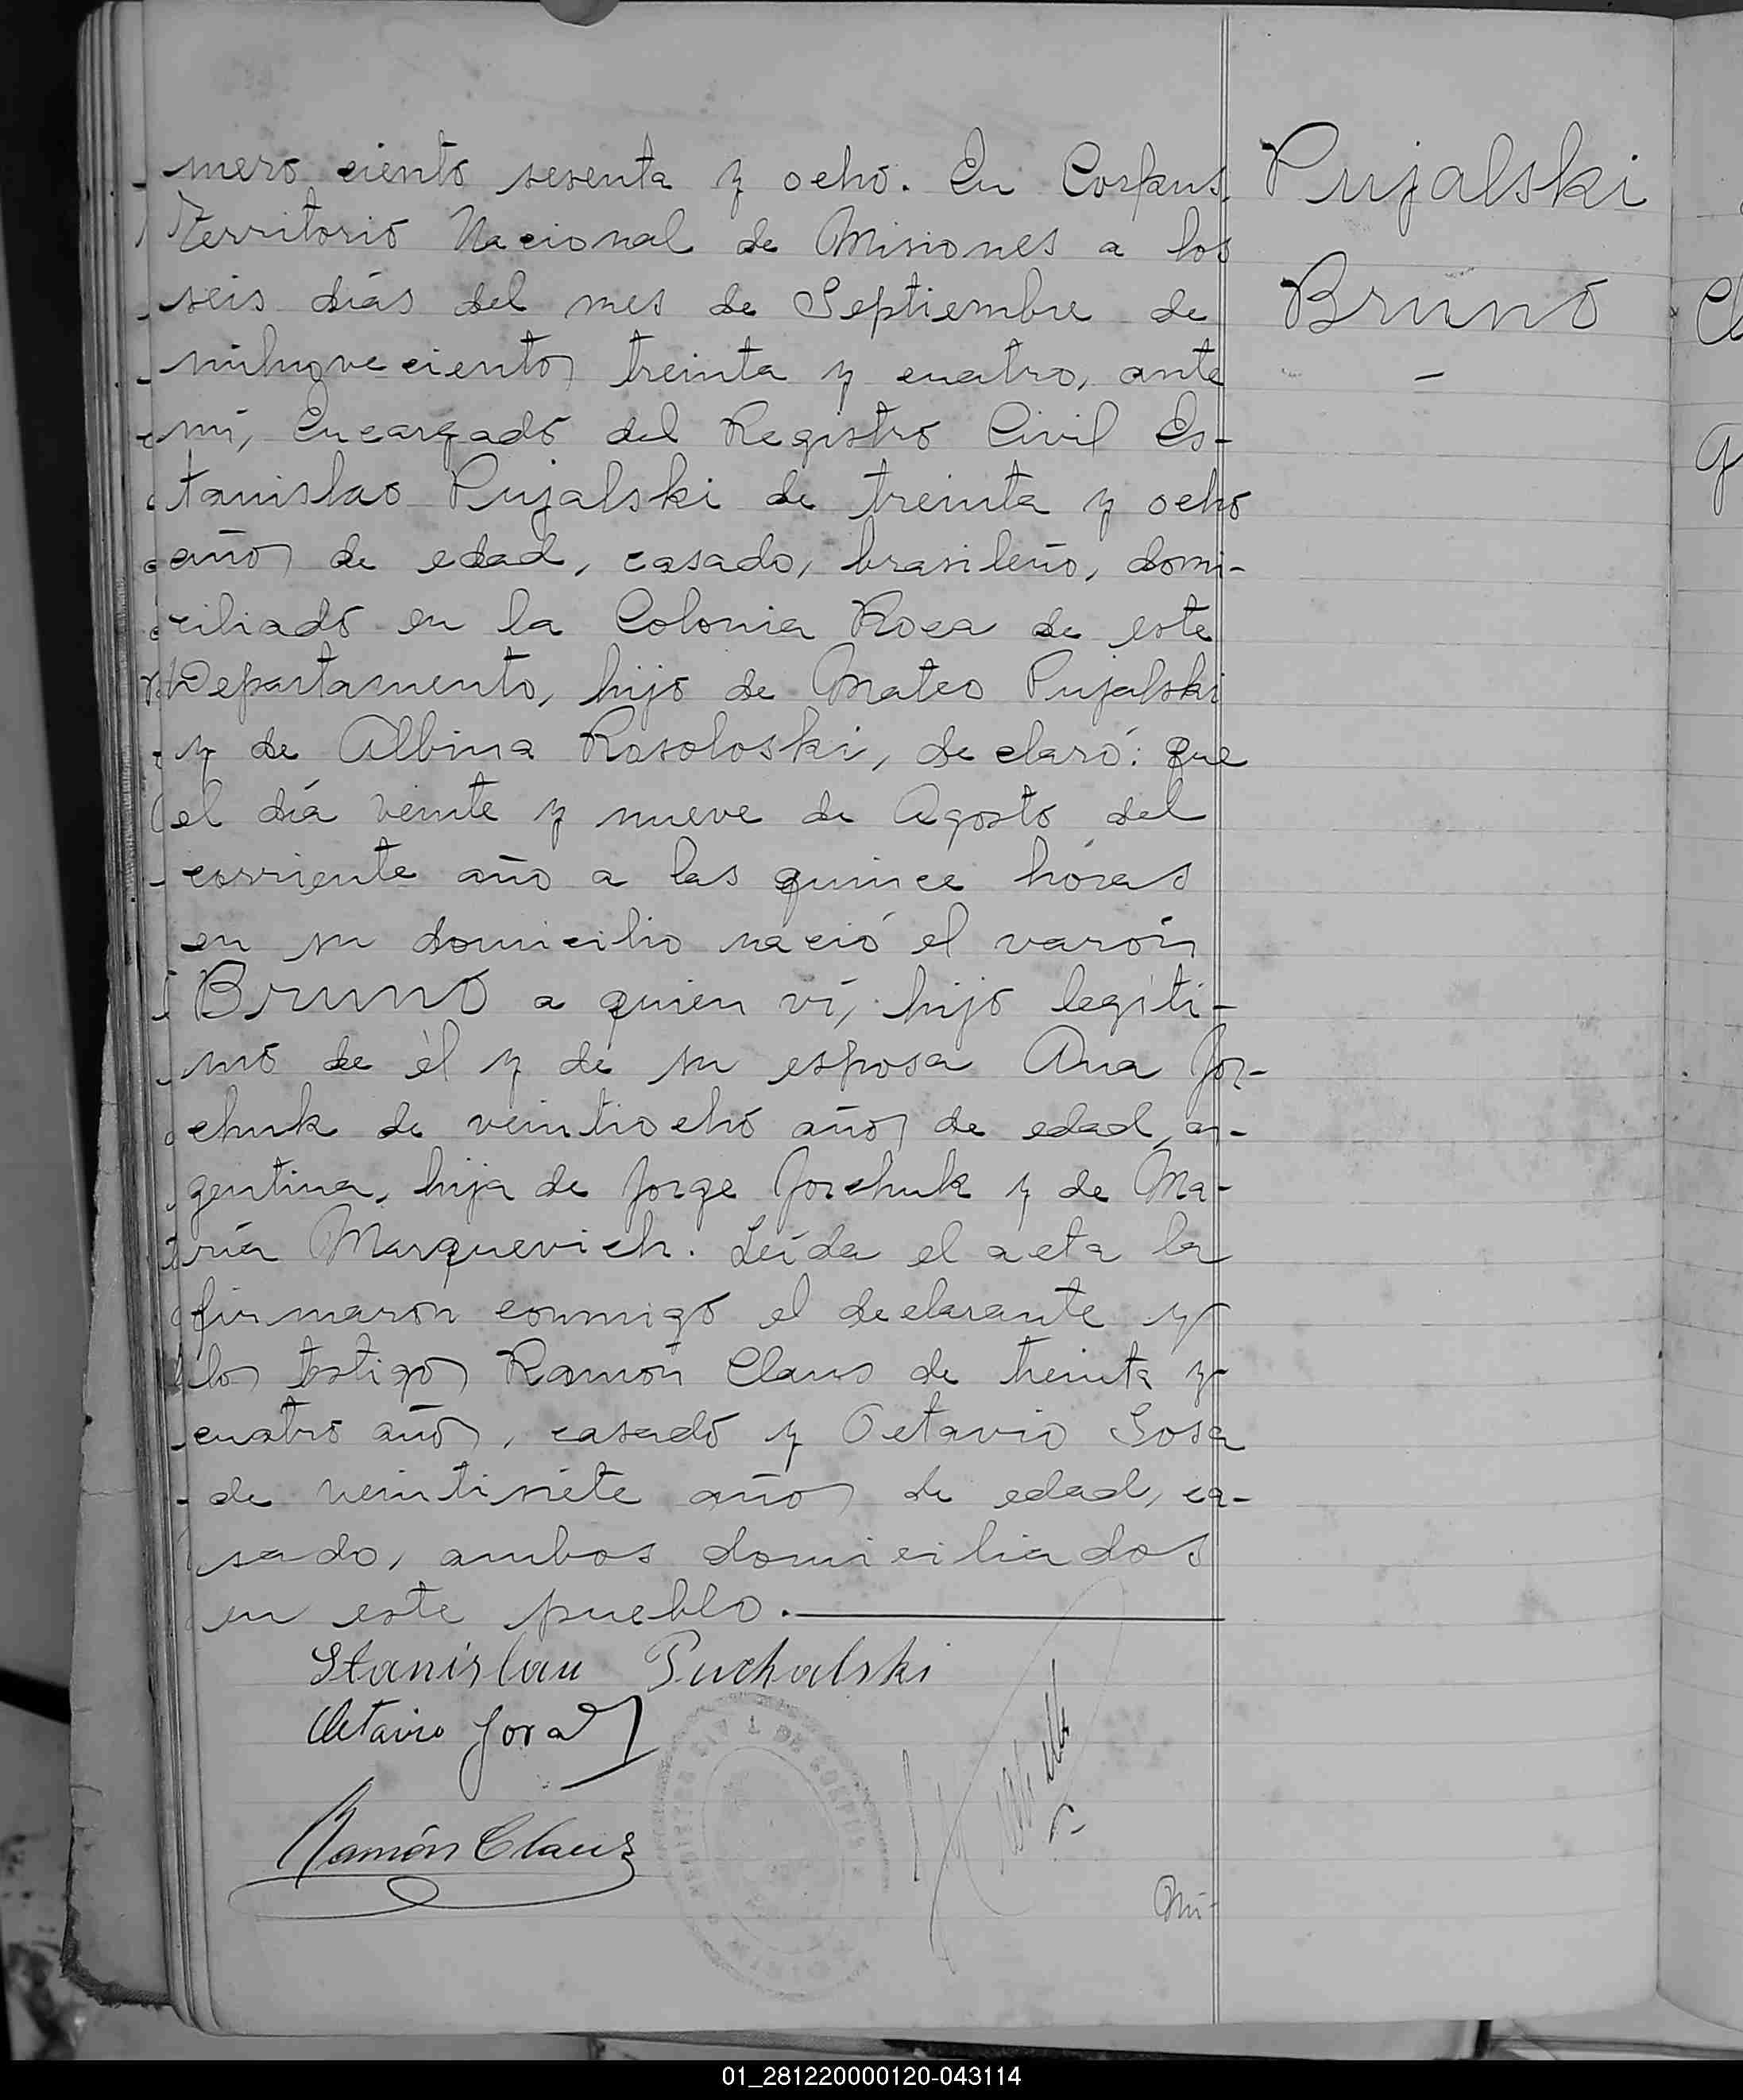 mero ciento sesenta y ocho. En Corpus,
Territorio Nacional de Misiones a los
seis días del mes de Septiembre de
milnoveciento) treinta y cuatro, ante
mí, Encargado del Registro Civil Es-
tanislao Pujalski de treinta y ocho
año) de edad, casado, brasileño, domi-
ciliado en la Colonia Roca de este
Departamento, hijo de Mateo Pujalski
y de Albina Rosoloski, declaró: que
el día veinte y nueve de Agosto del
corriente año a las quince horas
en su domicilio nació el varón
Bruno a quien ví, hijo legíti-
mo de él y de su esposa Ana Jor-
chuk de veintiocho año) de edad, ar-
gentina, hija de Jorge Jorchuk y de Ma-
ría Marquevich. Leída el acta la
firmaron conmigo el declarante y
lo) testigo) Ramón Claus de treinta y
cuatro año), casado y Octavio Sosa
de veintisiete año) de edad, ca-
sado, ambos domiciliados
en este pueblo.
Stanislau Puchalski
Octavio Sosa
Ramón Claus
REGISTRO CIVIL DE CORPUS
Nú-
Pujalski
Bruno
-
01_281220000120-043114